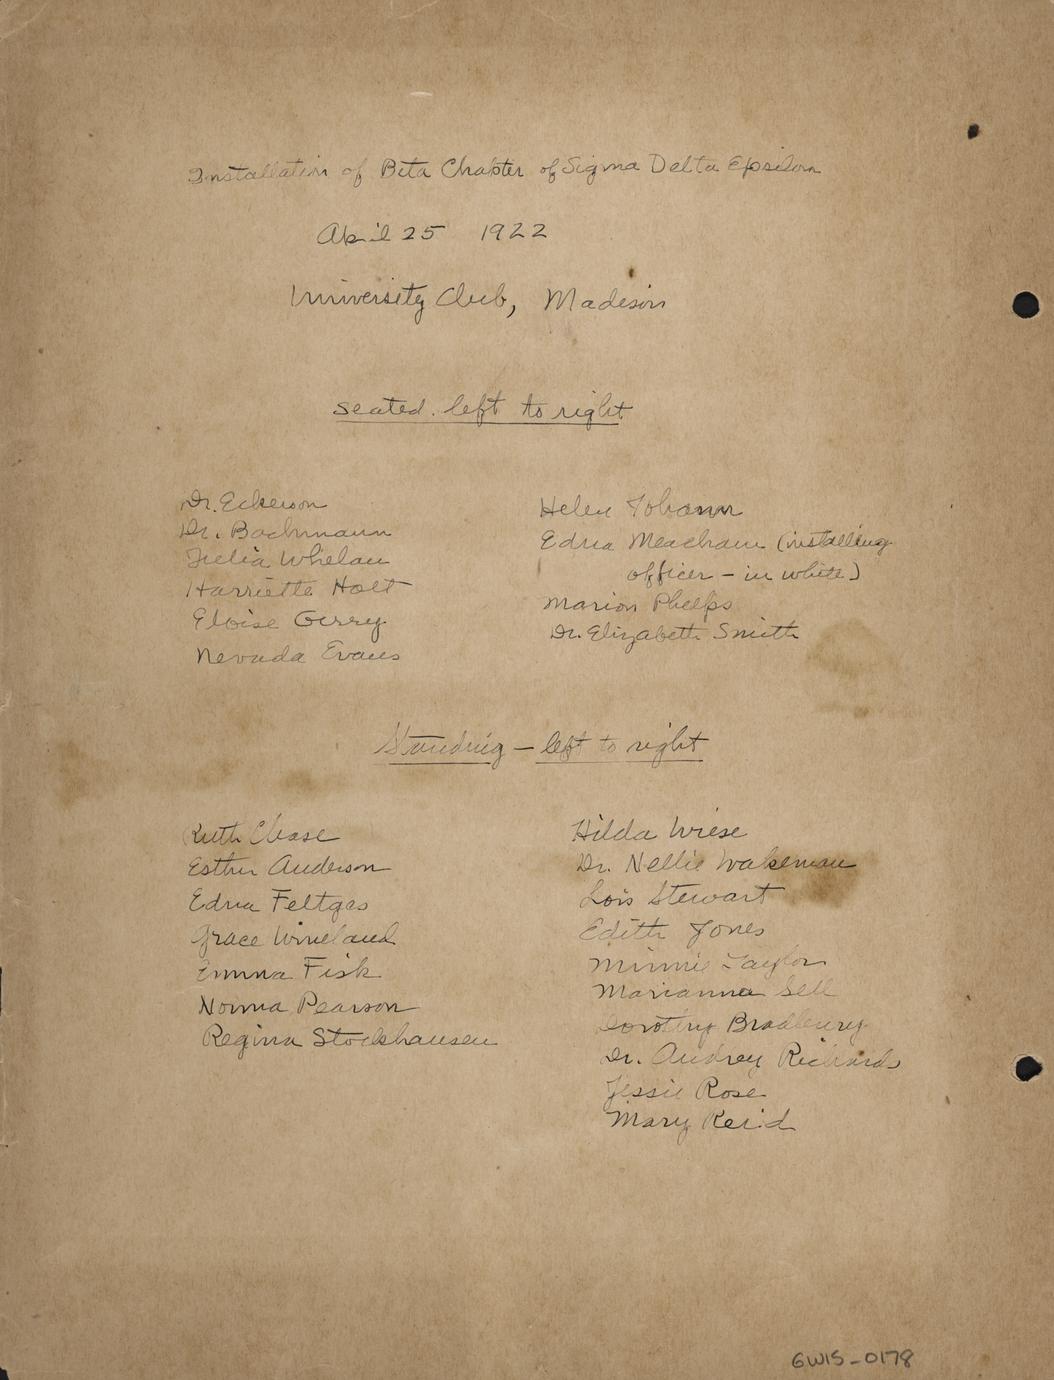 Installation of Beta Chapter of Sigma Delta Epsilon
April 25 1922
University Club, Madison
seated. left to right
Dr. Eckerson
Dr. Bachmann
Julia Whelan
Harriette Holt
Eloise Gerry
Nevada Evans
Helen Johann
Edna Meacham (installing
officer - in white)
Marion Phelps
Dr. Elizabeth Smith
Standing - left to right
Ruth Chase
Esther Anderson
Edna Feltges
Grace Wineland
Emma Fisk
Norma Pearson
Regina Stockhausen
Hilda Wiese
Dr. Nellie Wakeman
Lois Stewart
Edith Jones
Minnie Taylor
Marianna Sell
Dorothy Bradbury
Dr. Audrey Richards
Jessie Rose
Mary Reid
GWIS-0178